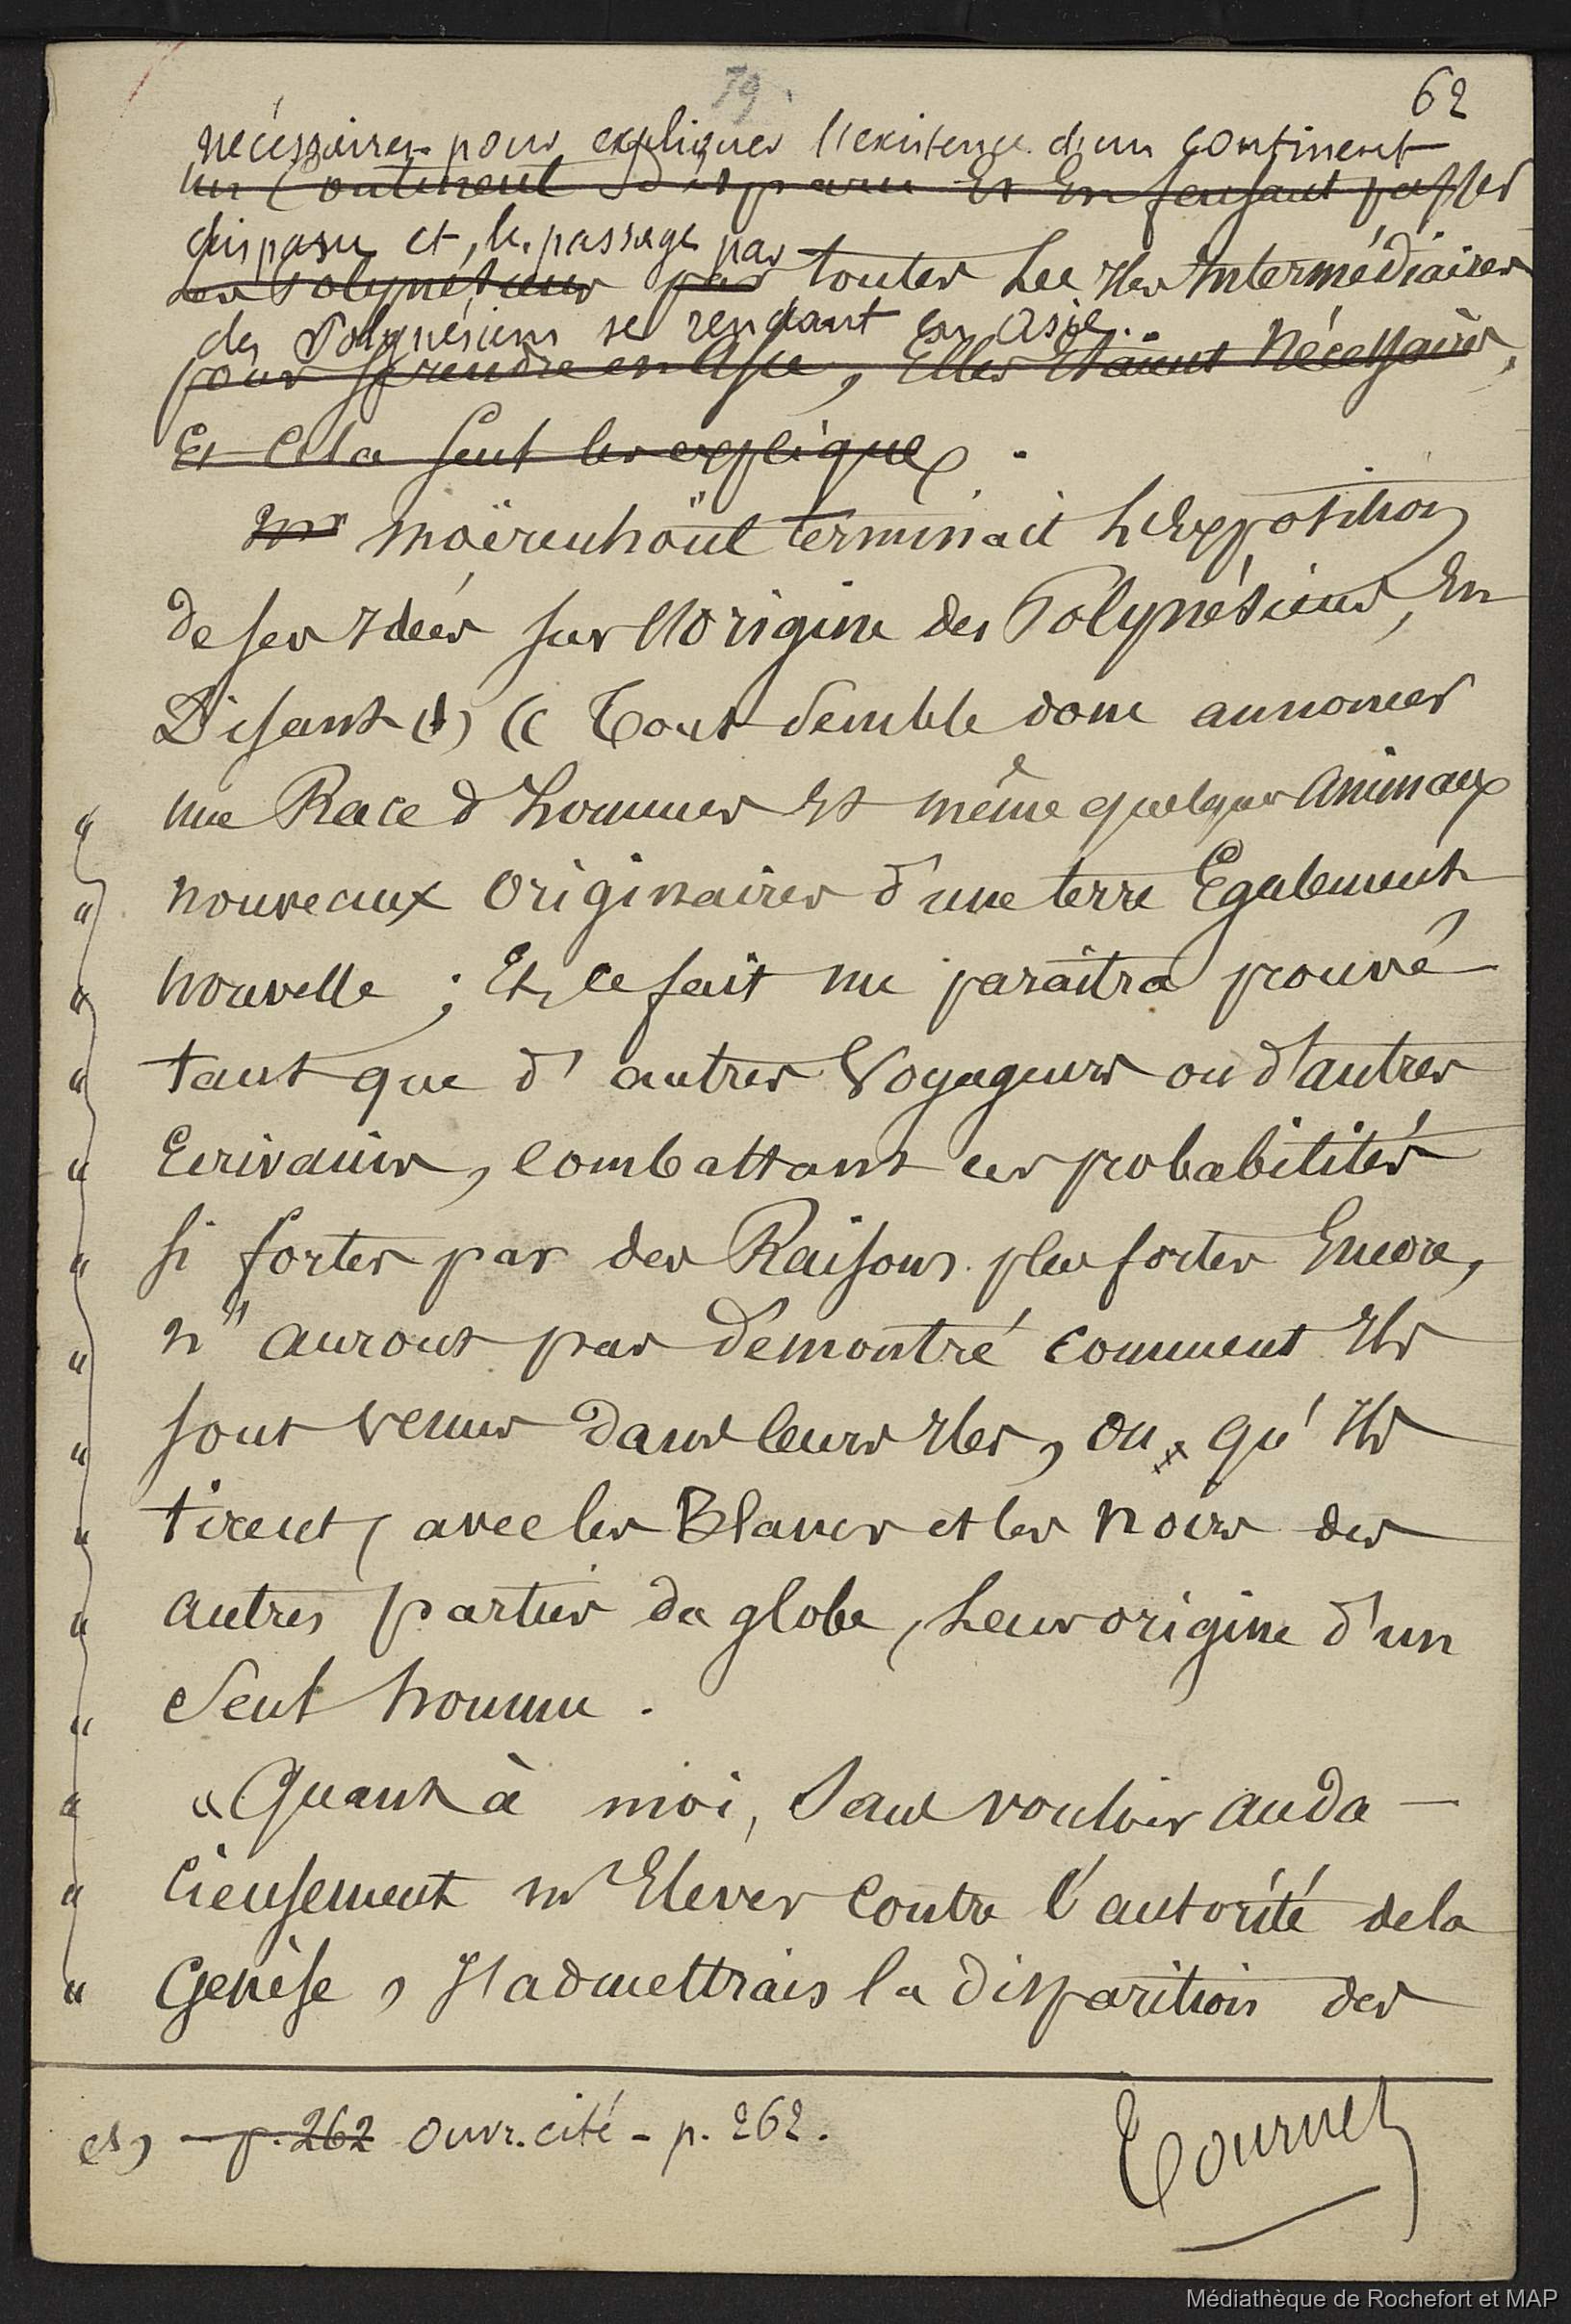 79.
62
nécessaires pour expliquer l'existence d'un continent
un Continent disparu Et En faisant passer
disparu et, le passage par
les Polynésiens par toutes Les Iles Intermédiaires
des Polynésiens se rendant en Asie..
pour se rendre en Asie, Elles étaient Nécessaires,
Et Cela seul les explique.
Mr Moërenhoüt terminait L'Exposition
de ses Idées sur l'Origine des Polynésiens, En
Disant (1) « Tout Semble donc annoncer
une Race d'hommes Et même quelques Animaux
nouveaux Originaires d'une terre Egalement
nouvelle ; Et, ce fait me paraîtra prouvé
tant que d'autres Voyageurs ou d'autres
Ecrivains, combattant ces probabilités
si fortes par des Raisons plus fortes Encore,
n'auront pas démontré comment Ils
sont venus dans leurs Iles, ou qu'Ils
tirent, avec les Blancs et les Noirs des
autres parties du globe, Leur origine d'un
Seul homme.
« Quant à moi, Sans vouloir auda-
cieusement m'Elever Contre l'autorité de la
Genèse, J'admettrais la disparition des
(1) p. 262 Ouvr. cité - p. 262.
Tournez
Médiathèque de Rochefort et MAP